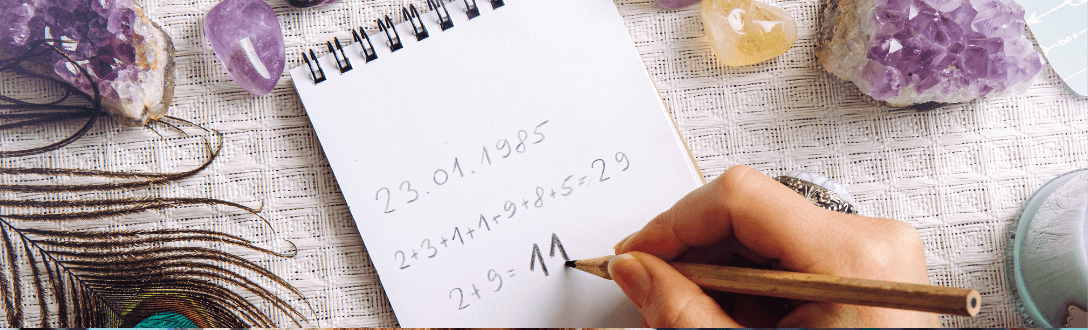 23.01.1985
2+3+1+1+9+8+5=29
2+9=11